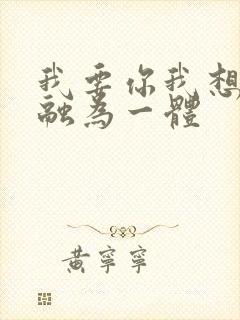 我要你我想
融為一體
黃寧寧